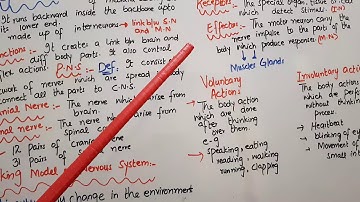 It runs backward inside the backbone upto
its lower end.
made up of interneurons → link b/w S.N and M.N
Functions:- It creates a link b/n brain and
diff body parts. It also control
reflex actions.
P.N.S:- Def: It consists
network of nerves which are spread
are connect all body parts to C.N.S.
Cranial Nerve:- The nerve which arise from
Spinal Nerve:- The nerve which arise from
spinal
12 pairs of Cranial
31 pairs of
Working Model Nervous System:-
change in the environment
Receptors: The special organ, tissue or
which detect Stimuli (S.N)
Effector:- The motor neuron carry the
nerve impulse to the parts of the
body which produce response (M.N)
Muscles Glands
Voluntary
Actions
→ The body action
which are done
after thinking
over them.
e-g
→ speaking, eating
reading, walking
running, clapping
Involuntary
→ The body actions
which are perform
without think
process.
→ Heartbeat
→ blinking of
→ Movement of
small